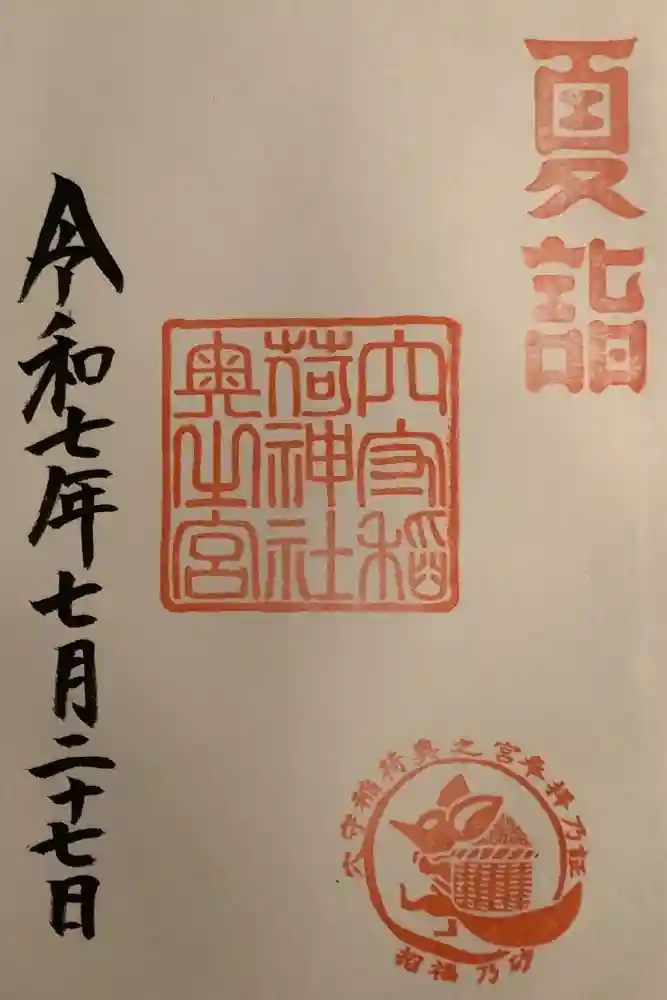 夏詣
穴守稲
荷神社
奥之宮
令和七年七月二十七日
穴守稲荷奥之宮奉拝乃証
招福乃砂